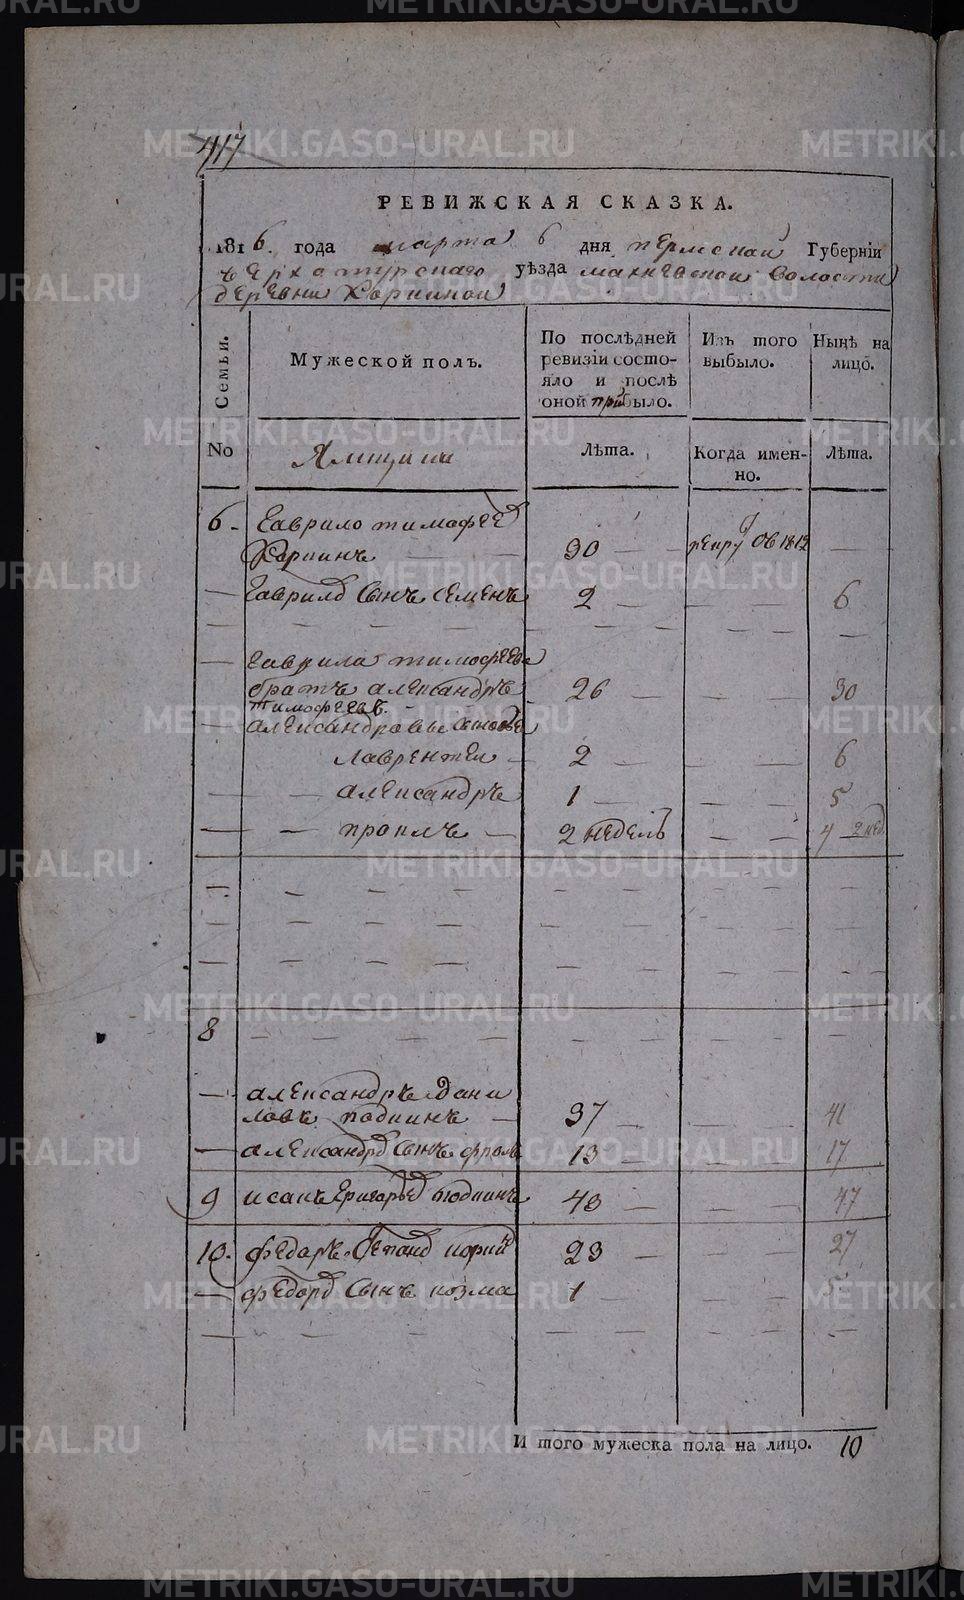 417
РЕВИЖСКАЯ СКАЗКА.
1816. года марта 6 дня пермской Губернiи
верхотурскаго уѣзда махневской волости
деревни
Семьи.
Мужеской полъ.
По послѣдней ревизiи состояло и послѣ оной прибыло.
Изъ того выбыло.
Нынѣ на лицо.
No
Ямщики
Лѣта.
Когда именно.
Лѣта.
6. Гаврило тимофѣев
30 рекру ов 1812
Гаврилов сынъ семенъ 2 6
Гаврила тимофеева
братъ александръ 26 30
тимофеевъ.
александровы
лаврентей 2 6
александръ 1 5
2 недель 4 2 нед.
8
александръ Дани
ловъ подкинъ 37 41
александров сынъ фролъ 13 17
9 исакъ Григорьев подкинъ 43 47
10. федоръ Степанов 23 27
федоров сынъ козма 1 5
И того мужеска пола на лицо. 10
METRIKI.GASO-URAL.RU